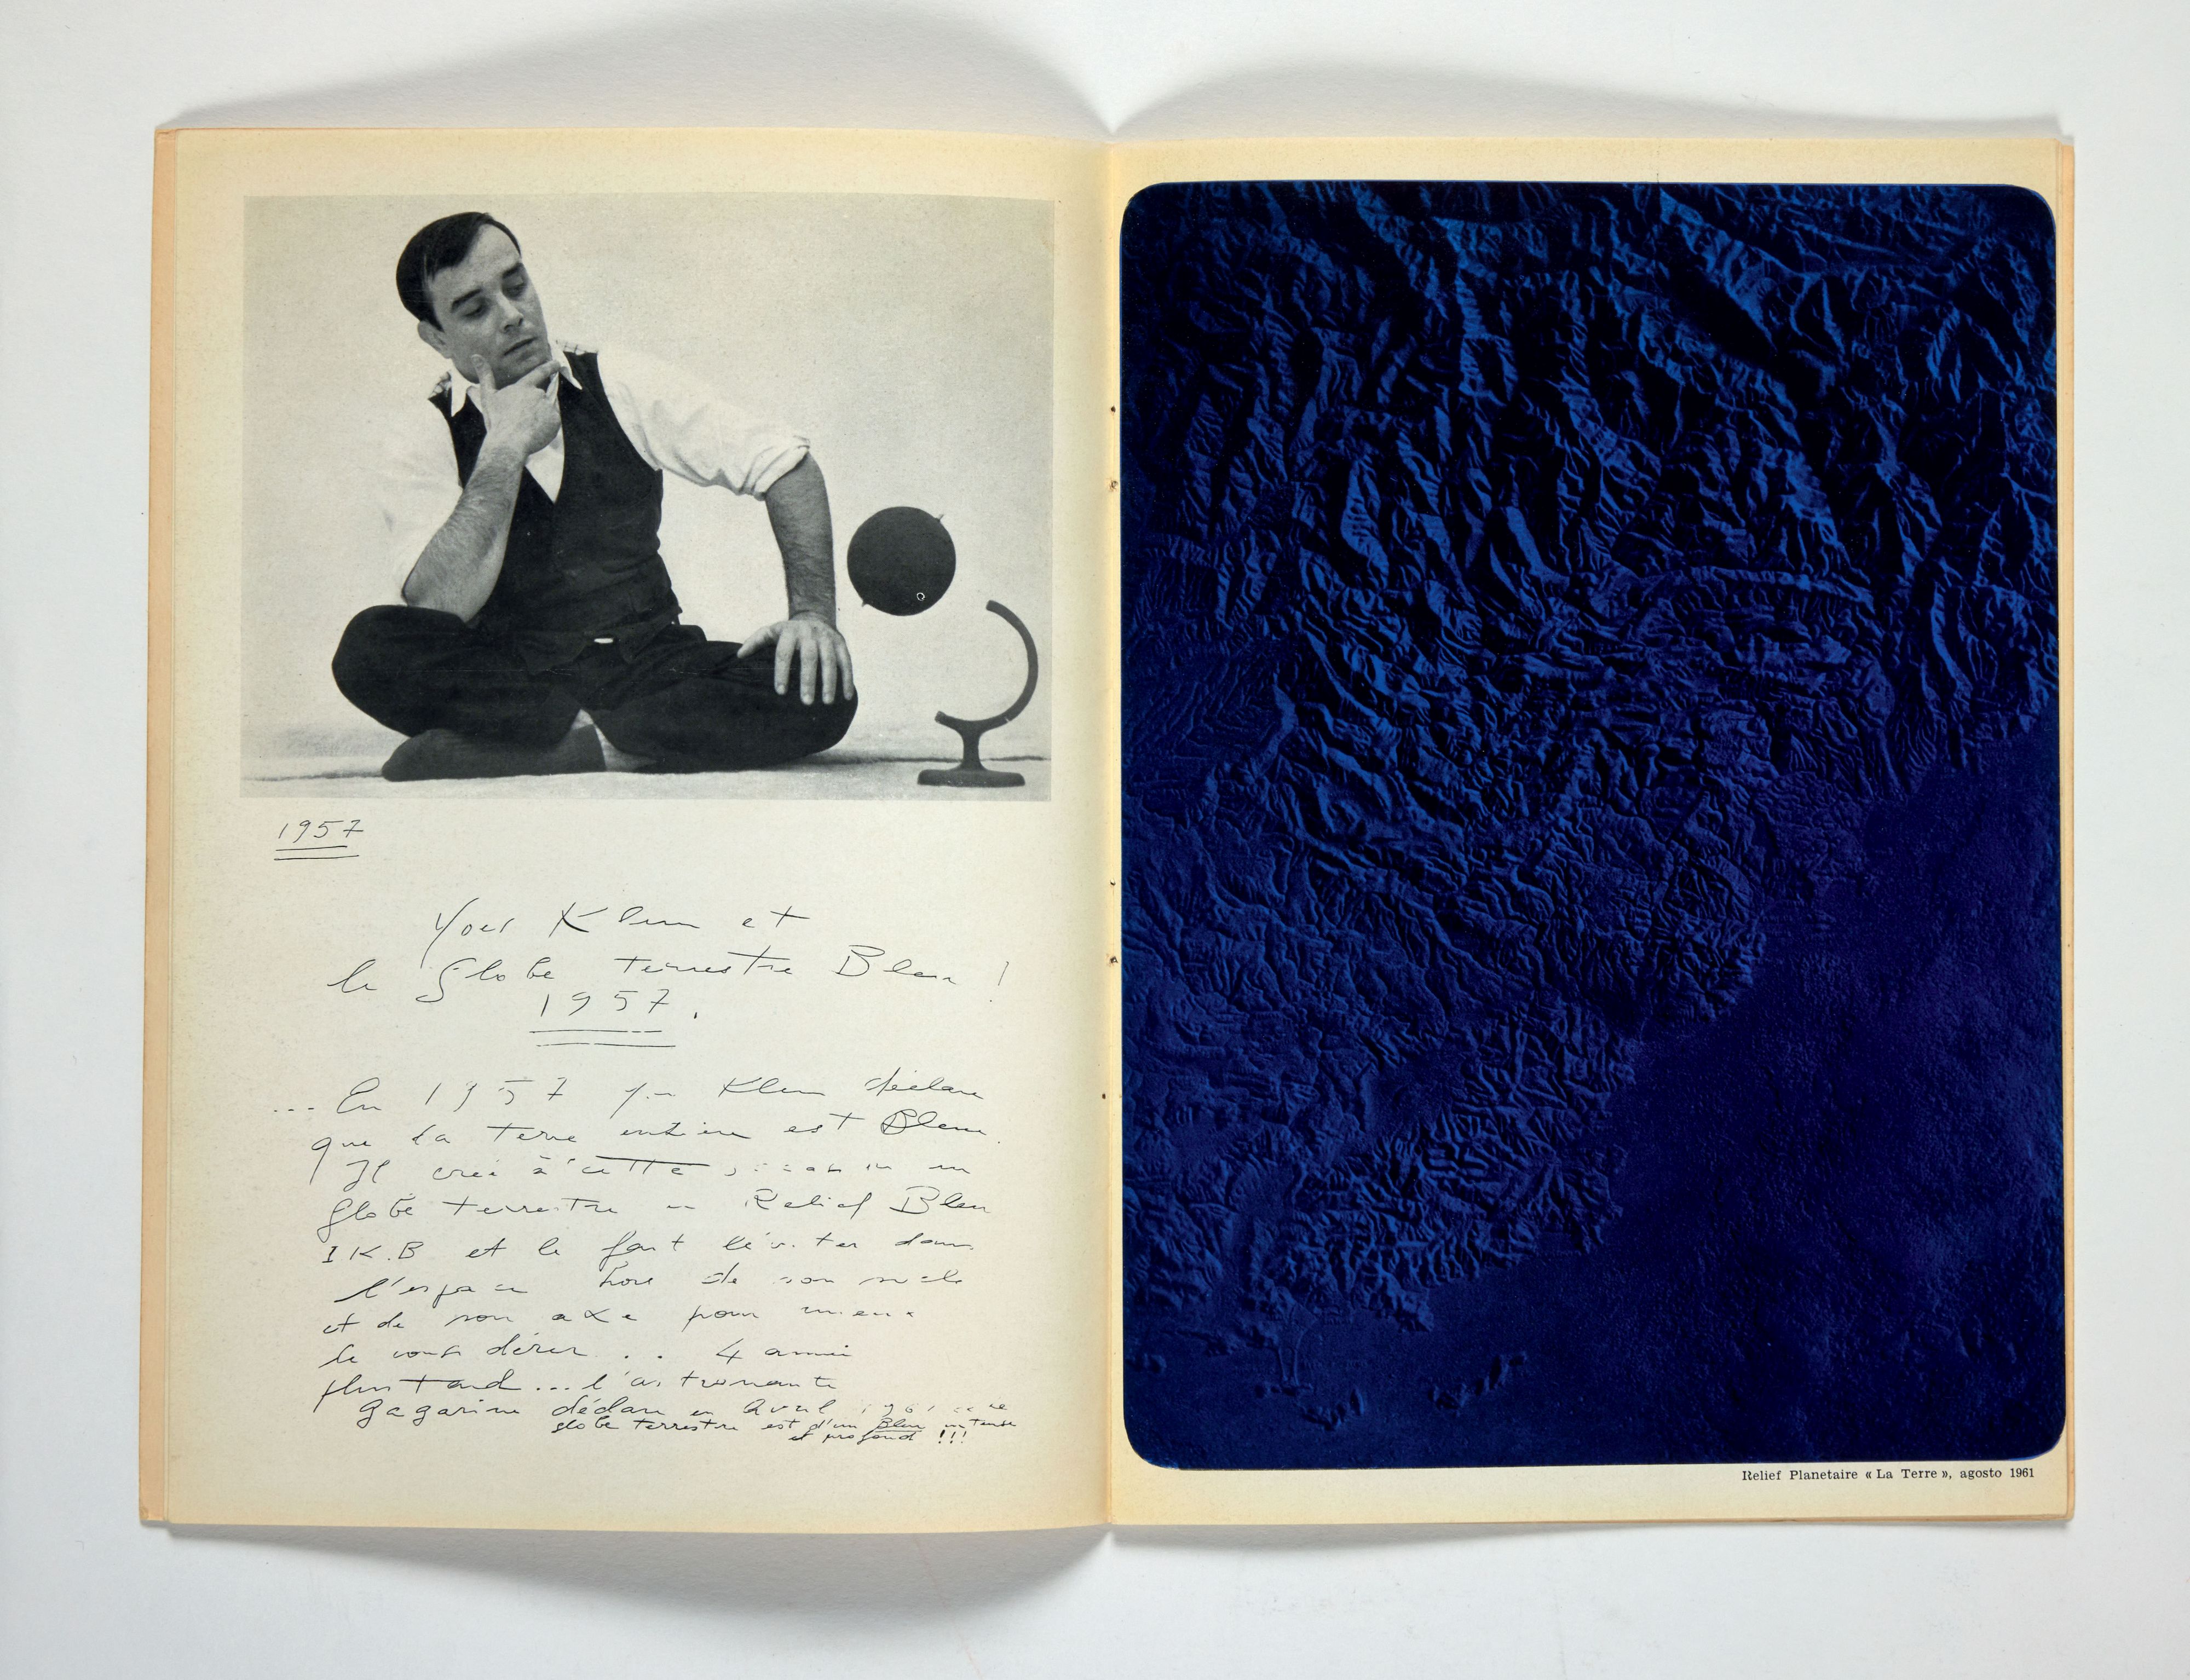 1957
Yves Klein et
le Globe terrestre Bleu !
1957.
... En 1957 Yves Klein déclare
que la terre entière est Bleue.
Il crée à cette occasion un
globe terrestre en Relief Bleu
I K.B et le fait léviter dans
l'espace hors de son socle
et de son axe pour mieux
le considérer . . 4 années
plus tard... l'astronaute
Gagarine déclare en Avril 1961 que le
globe terrestre est d'un Bleu intense
et profond !!!
Relief Planetaire « La Terre », agosto 1961